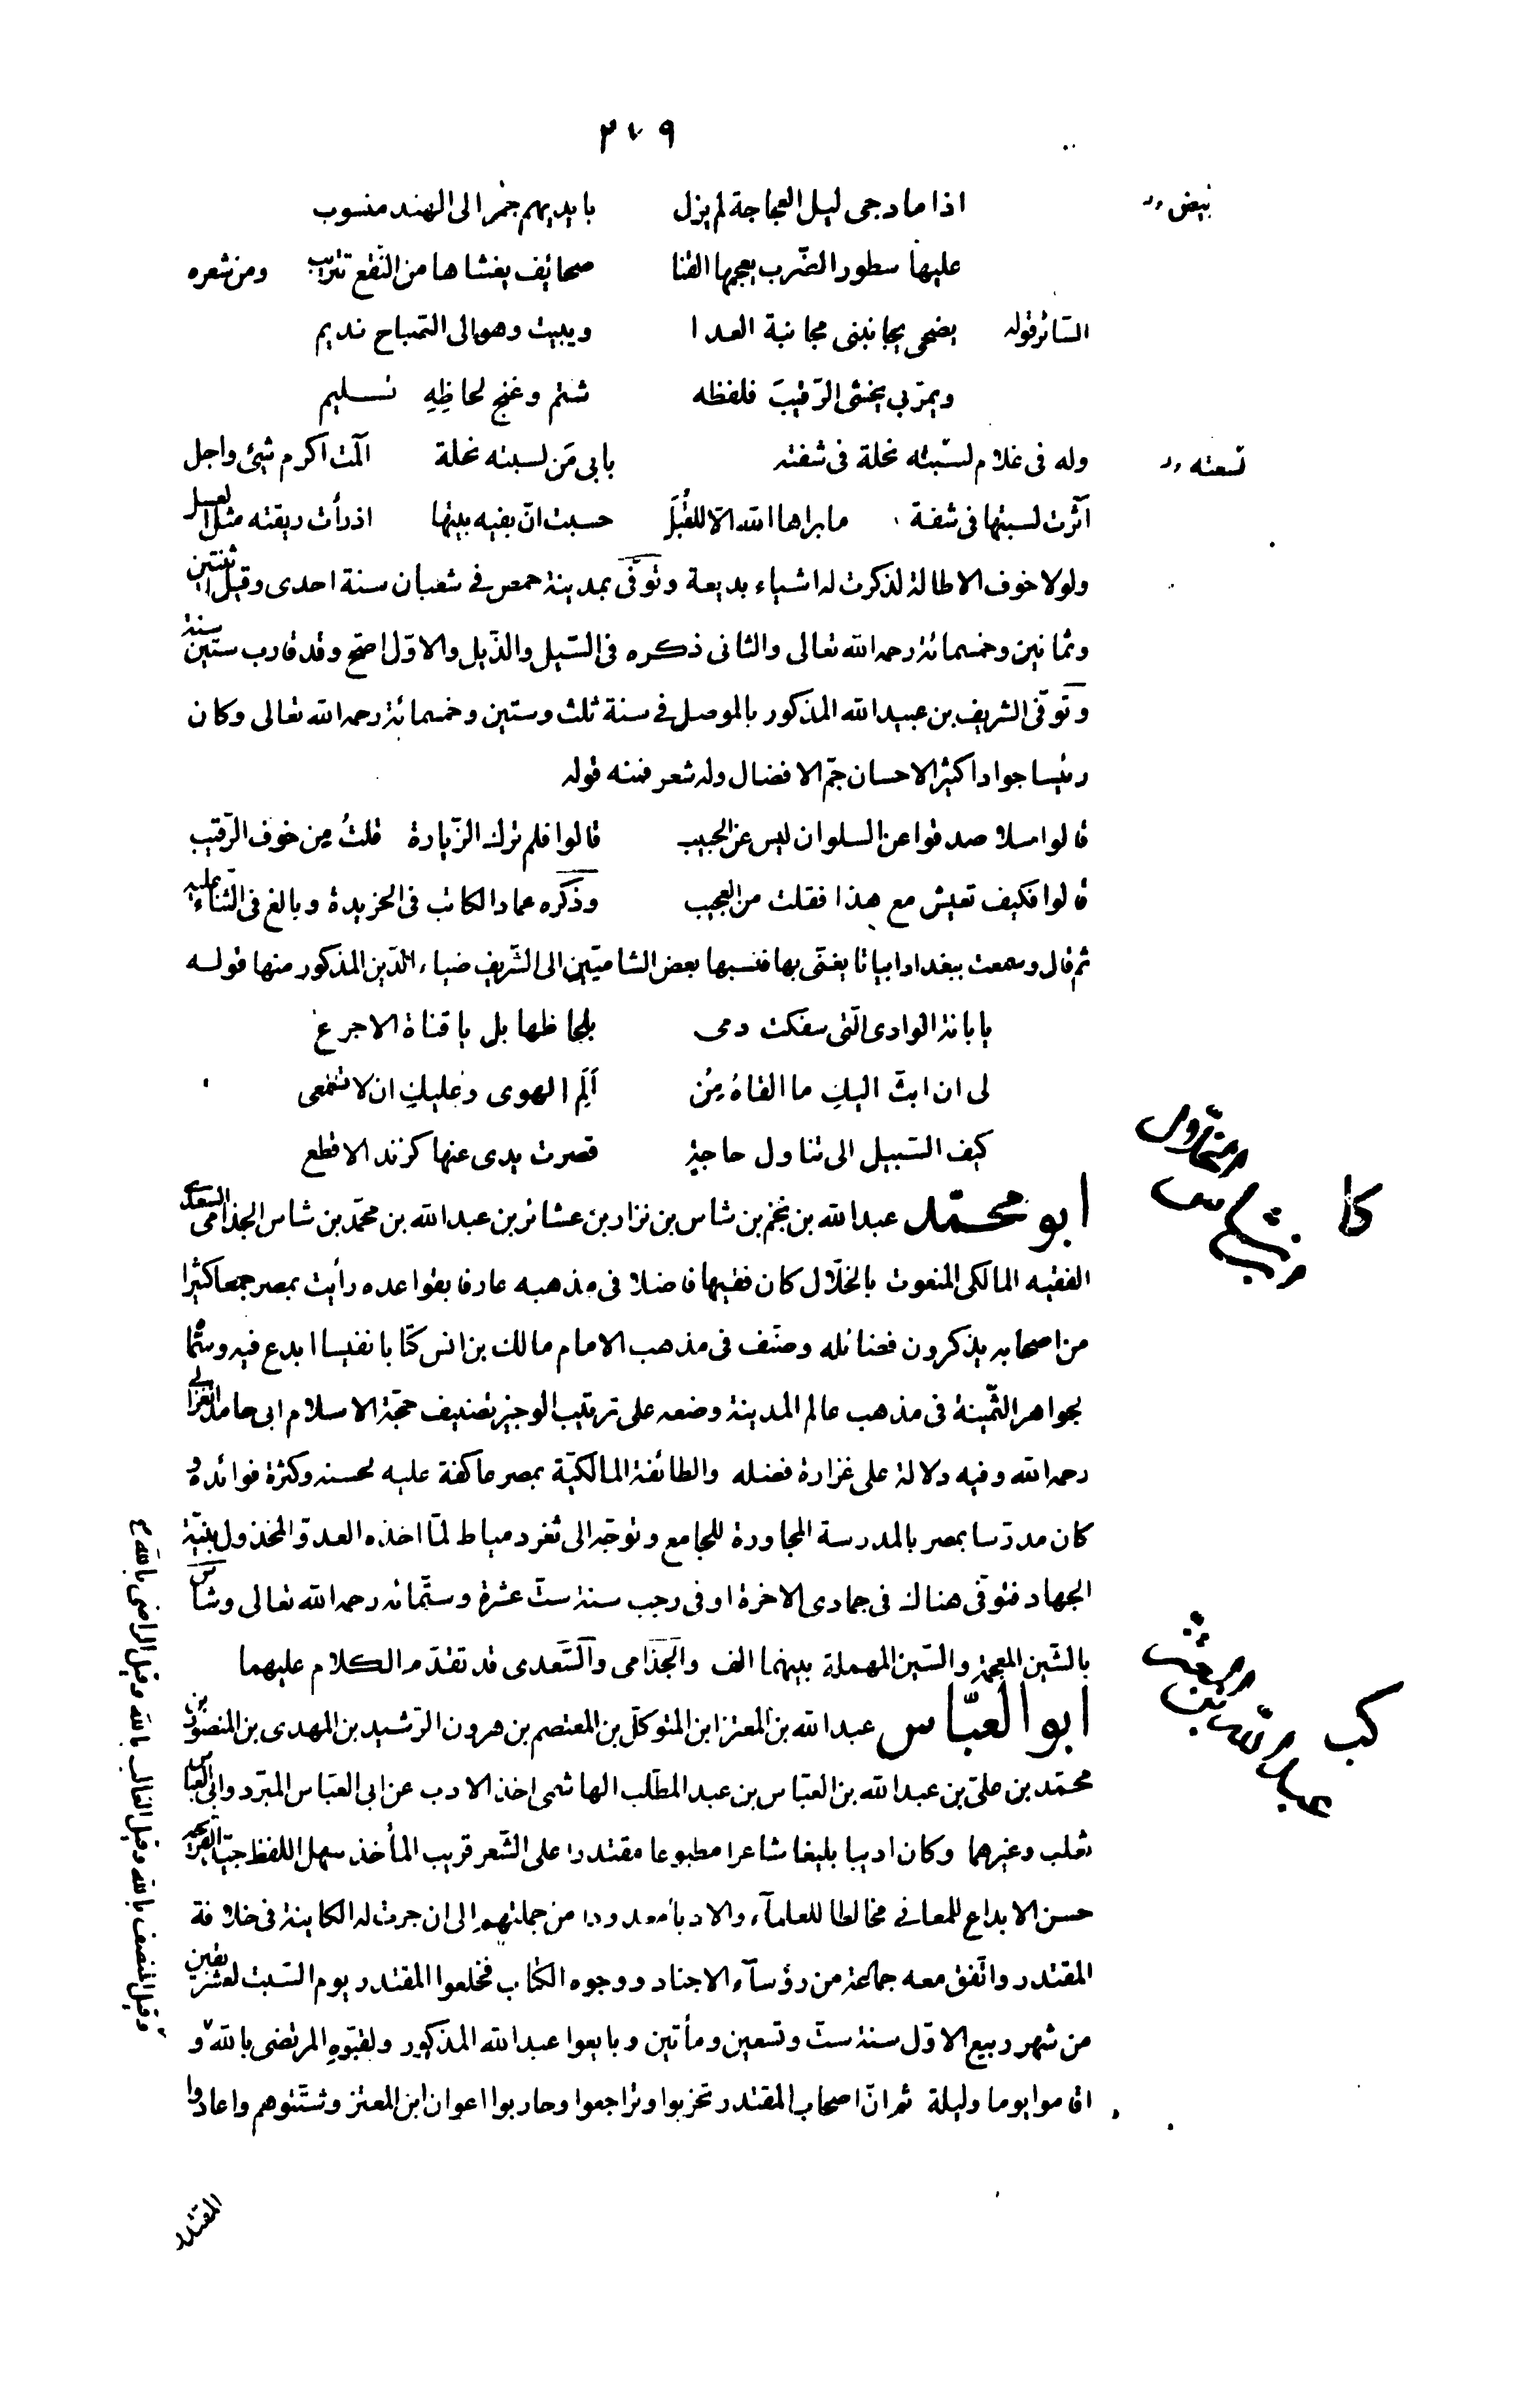 ٢٧٩
اذا ما دجى ليل العجاجة لم يزل بايديهم جمر الى الهند منسوب
بيض
عليها سطور الضرب يعجمها القنا صحائف يغشاها من النقع تتريب ومن شعره
السّائر قوله يضحى يجانبنى مجانبة العدا ويبيت وهو الى الصّباح نديم
ويمرّ بى يخشى الرّقيبَ فلفظه شتم وغنج لحاظِهِ تسليم
وله فى غلام لسّبته نحلة فى شفته بابى مَن لسبته نحلة آلمت اكرم شيئ واجل
لسعته
آثرت لسبتها فى شفة ما براها الله الّا للقُبَل حسبت انّ بفيه بيتها اذ رأت ريقته مثل العسل
ولولا خوف الاطالة لذكرت له اشياء بديعة وتوفّى بمدينة حمص فى شعبان سنة احدى وقيل اثنتين
وثمانين وخمسمائة رحمه الله تعالى والثانى ذكره فى السّيل والذّيل والاوّل اصحّ وقد قارب ستّين سنة
وتوفّى الشريف بن عبيد الله المذكور بالموصل فى سنة ثلث وستين وخمسمائة رحمه الله تعالى وكان
رئيسا جوادا كثير الاحسان جمّ الافضال وله شعر فمنه قوله
قالوا سلا صدقوا عن السلوان ليس عن الحبيب قالوا فلم ترك الزّيارة قلتُ مِن خوف الرّقيب
قالوا فكيف تعيش مع هذا فقلت من العجيب وذكره عماد الكاتب فى الخريدة وبالغ فى الثناء عليه
ثم قال وسمعت ببغداد ابياتا يغنّى بها فنسبها بعض الشاميّين الى الشّريف ضياء الدّين المذكور منها قوله
يا بانة الوادى الّتى سفكت دمى بلحاظها بل يا قناة الاجرع
لى ان ابثّ اليكِ ما القاهُ مِن اَلَمِ الهوى وعليكِ ان لا تسمعى
كيف السّبيل الى تناول حاجةٍ قصرت يدى عنها كزند الاقطع
كا
ابو محمّد عبد الله بن نجم بن شاس بن نزار بن عشائر بن عبد الله بن محمّد بن شاس الجذامى السعدى
الفقيه المالكى المنعوت بالخلّال كان فقيها فاضلا فى مذهبه عارفا بقواعده رأيت بمصر جمعا كثيرا
من اصحابه يذكرون فضائله وصنّف فى مذهب الامام مالك بن انس كتابا نفيسا ابدع فيه وسمّاه
بجواهر الثّمينة فى مذهب عالم المدينة وضعه على ترتيب الوجيز تصنيف حجّة الاسلام ابى حامد الغزالى
رحمه الله وفيه دلالة على غزارة فضله والطائفة المالكيّة بمصر عاكفة عليه لحسنه وكثرة فوائده و
كان مدرّسا بمصر بالمدرسة المجاورة للجامع وتوجّه الى ثغر دمياط لمّا اخذه العدوّ المخذول بنيّة
الجهاد فتوفّى هناك فى جمادى الاخرة او فى رجب سنة ستّ عشرة وستّمائه رحمه الله تعالى وشاس
بالشّين المعجمة والسّين المهملة بينهما الف والجذامى والسّعدى قد تقدّم الكلام عليهما
كب
عبد الله بن المعتز
ابو العبّاس عبد الله بن المعتز ابن المتوكّل بن المعتصم بن هرون الرّشيد بن المهدى بن المنصور بن
محمّد بن علىّ بن عبد الله بن العبّاس بن عبد المطّلب الهاشمى اخذ الادب عن ابى العبّاس المبرّد وابى العبّاس
ثعلب وغيرهما وكان اديبا بليغا شاعرا مطبوعا مقتدرا على الشّعر قريب المأخذ سهل اللفظ جيّد القريحة
حسن الابداع للمعانى مخالطا للعلمآء والادبا معدودا من جملتهم الى ان جرت له الكاينة فى خلافة
المقتدر واتّفق معه جماعة من رؤسآء الاجناد ووجوه الكتّاب فخلعوا المقتدر يوم السّبت لعشر بقين
من شهر ربيع الاوّل سنة ستّ وتسعين ومأتين وبايعوا عبد الله المذكور ولقّبوه المرتضى بالله و
اقاموا يوما وليلة ثم انّ اصحاب المقتدر تحزبوا وتراجعوا وحاربوا اعوان ابن المعتز وشتّتوهم واعادوا
وقيل المنصف بالله وقيل الغالب بالله وقيل الراضى بالله
المقتدر